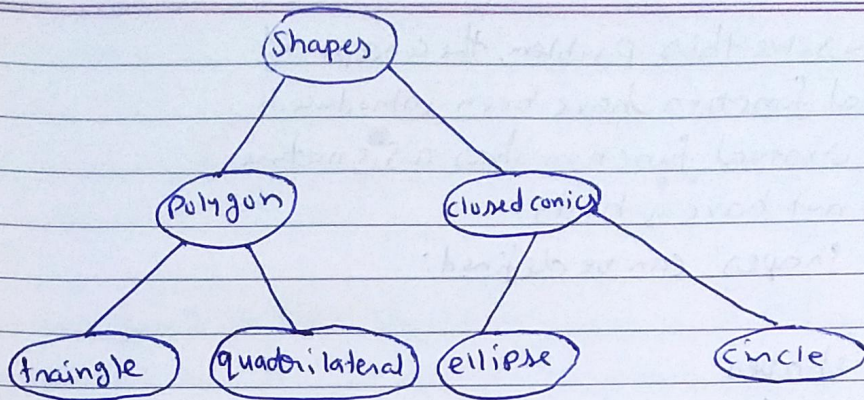 Shapes
Polygon
closed conics
traingle quadrilateral ellipse circle